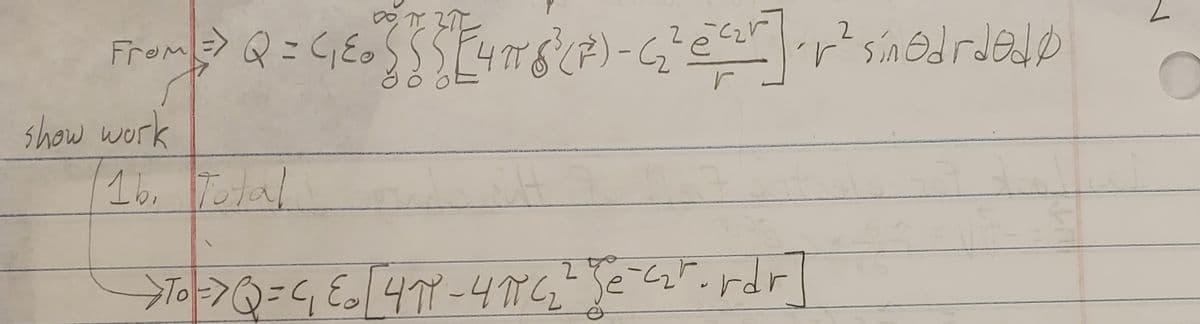 From => Q = C₁ε₀ ∫₀^∞ ∫₀^π ∫₀^2π [4πδ³(r⃗) - C₂² e^(-C₂r)/r] · r² sinθdrdθdφ
show work
1b. Total
To => Q = C₁ ε₀ [4π - 4πC₂² ∫₀^∞ e^(-C₂r) · rdr]